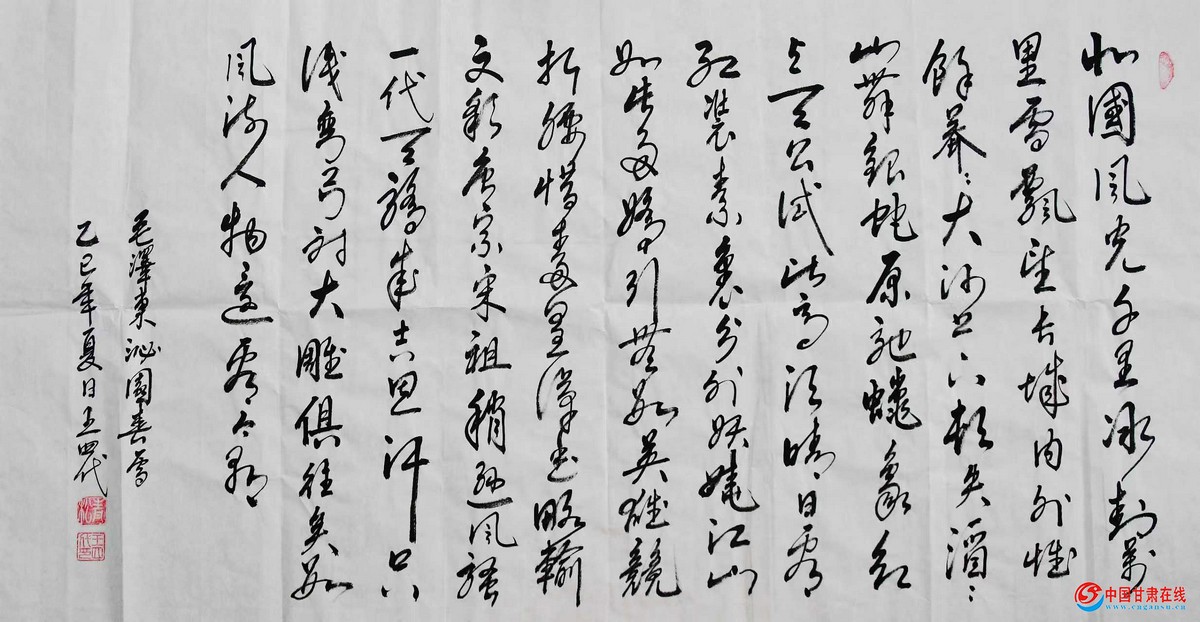 北國風光千里冰封萬
里雪飄望長城内外惟
餘莽〻大河上下頓失滔〻
山舞銀蛇原馳蠟象欲
与天公試比高須晴日看
紅裝素裹分外妖嬈江山
如此多嬌引無數英雄競
折腰惜秦皇漢武略輸
文彩唐宗宋祖稍遜風騷
一代天驕成吉思汗只
識彎弓射大雕俱往矣數
風流人物還看今朝
毛澤東沁園春雪
乙巳年夏日王四代
中国甘肃在线
www.cngansu.cn